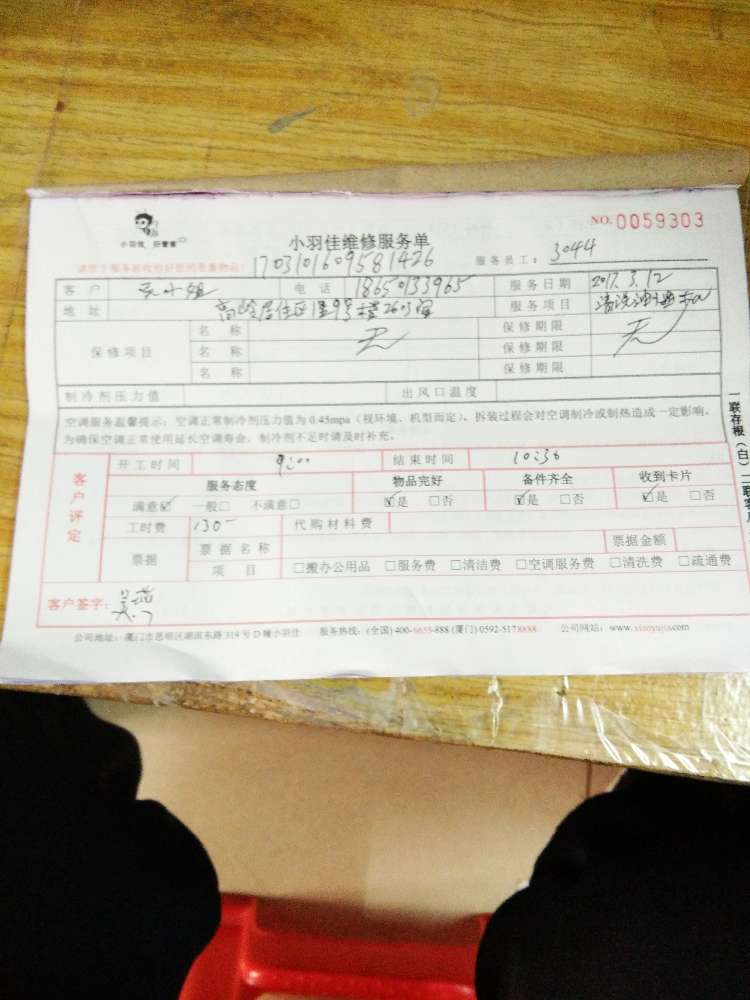 小羽佳 好管家
小羽佳维修服务单
NO.0059303
1703101609581426
服务员工: 3044
客 户 吴小姐 电 话 18650133965 服务日期 2017.3.12
地 址 服务项目 清洗油烟机
保修项目 名 称 无 保修期限 无
名 称 保修期限
名 称 保修期限
制冷剂压力值 出风口温度
空调服务温馨提示: 空调正常制冷剂压力值为 0.45mpa (视环境、机型而定), 拆装过程会对空调制冷或制热造成一定影响,
为确保空调正常使用延长空调寿命, 制冷剂不足时请及时补充。
客户评定
开工时间 9:00 结束时间 10:36
服务态度 物品完好 备件齐全 收到卡片
满意☑ 一般□ 不满意□ ☑是 □否 ☑是 □否 ☑是 □否
工时费 130- 代购材料费
票据 票据名称 票据金额
项 目 □搬办公用品 □服务费 □清洁费 □空调服务费 □清洗费 □疏通费
客户签字: 吴燕
公司地址: 厦门市思明区湖滨东路 319 号 D 幢小羽佳 服务热线: (全国) 400-6655-888 (厦门) 0592-5178888 公司网站: www.xiaoyujia.com
一联存根(白)二联客户